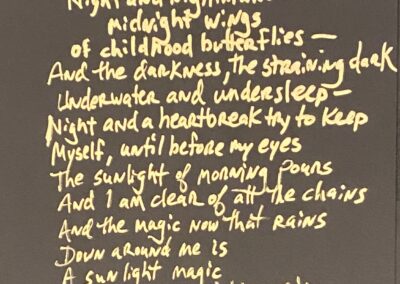 Night and Nightmare
midnight wings
of childhood butterflies —
And the darkness, the straining dark
Underwater and undersleep—
Night and a heartbreak try to keep
Myself, until before my eyes
The sunlight of morning pours
And I am clear of all the chains
And the magic now that rains
Down around me is
A sunlight magic